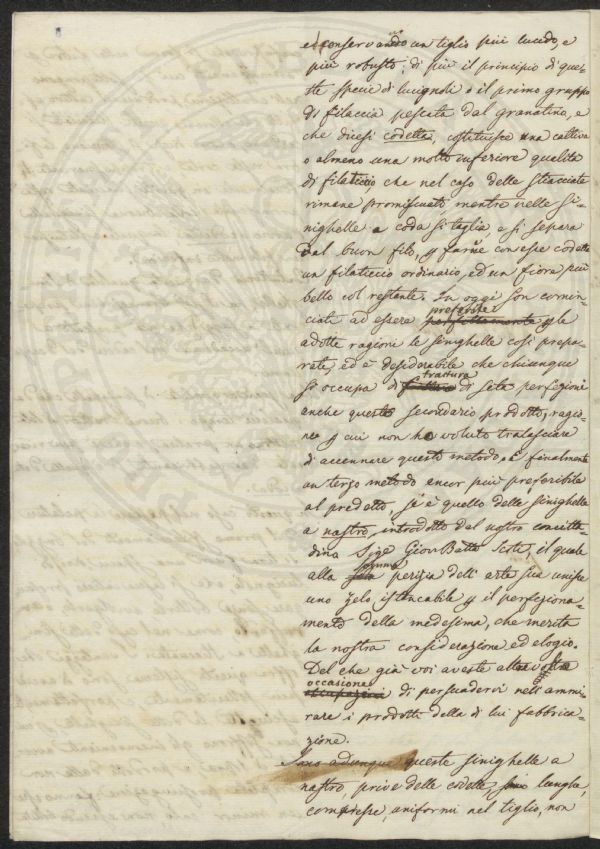 e conservando un tiglio più lucido, e
più robusto; di più il principio di que=
ste specie di lucignoli o il primo gruppo
di filaccia pescata dal granatino, e
che dicesi codetta, costituisce una cattiva
o almeno una molto inferiore qualità
di filaticcio, che nel caso delle stiacciate
rimane promiscuato, mentre nelle si=
nighelle a coda si taglia, e si separa
dal buon filo, p farne con esse codette
un filaticcio ordinario, ed un fiore più
bello col restante. In oggi son comin
ciate ad essere preferite p le
adotte ragioni le sinighelle così prepa=
rate, ed è desiderabile che chiunque
si occupa di trattura di seta perfezioni
anche questo secondario prodotto, ragio=
ne p cui non ho voluto tralasciare
di accennare questo metodo. E finalmente
un terzo metodo ancor più preferibile
al predetto, si è quello delle sinighelle
a nastro, introdotto dal nostro concitta=
dino Sigr Giov Batta Sesti, il quale
alla somma perizia dell'arte sua unisce
uno zelo istancabile p il perfeziona=
mento della medesima, che merita
la nostra considerazione ed elogio.
Del che già voi aveste altra volta
occasione di persuadervi nell'ammi=
rare i prodotti della di lui fabbrica=
zione.
Sono adunque queste sinighelle a
nastro, prive delle codette, lunghe,
compresse, uniformi nel tiglio, non